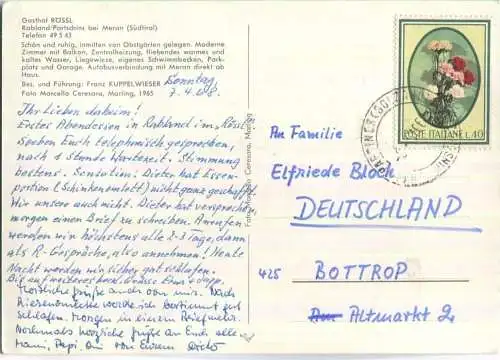 Gasthof RÖSSL
Rabland/Partschins bei Meran (Südtirol)
Telefon 49 5 43
Schön und ruhig, inmitten von Obstgärten gelegen. Moderne
Zimmer mit Balkon, Zentralheizung, fließendes warmes und
kaltes Wasser, Liegewiese, eigenes Schwimmbecken, Park-
platz und Garage. Autobusverbindung mit Meran direkt ab
Haus.
Bes. und Führung: Franz KUPPELWIESER
Foto Marcello Ceresara, Marling, 1965
Sonntag
7.4.68.
Ihr Lieben daheim!
Erstes Abendessen in Rabland im "Rössl".
Soeben Euch telephonisch gesprochen,
nach 1 Stunde Wartezeit. Stimmung
bestens. Sensation: Dieter hat Essen-
portion (Schinkenomlett) nicht ganz geschafft.
Wir unsere auch nicht. Dieter hat versprochen
morgen einen Brief zu schreiben. Anrufen
werden wir höchstens alle 2-3 Tage, dann
als R-Gespräche, also annehmen! Heute
Nacht werden wir sicher gut schlafen.
Bis auf weiteres herzl. Grüsse Eure
Herzliche Grüße auch von mir. Nach
Riesenomlette werde ich bestimmt gut
schlafen. Morgen in diesem Brief mehr.
Nochmals herzliche Grüße an Euch alle
Mami, Papi, Omi von Eurem Dieter
Foto Marcello Ceresara, Marling
POSTE ITALIANE L.40
An Familie
Elfriede Bloch
DEUTSCHLAND
425 BOTTROP
Altmarkt 2